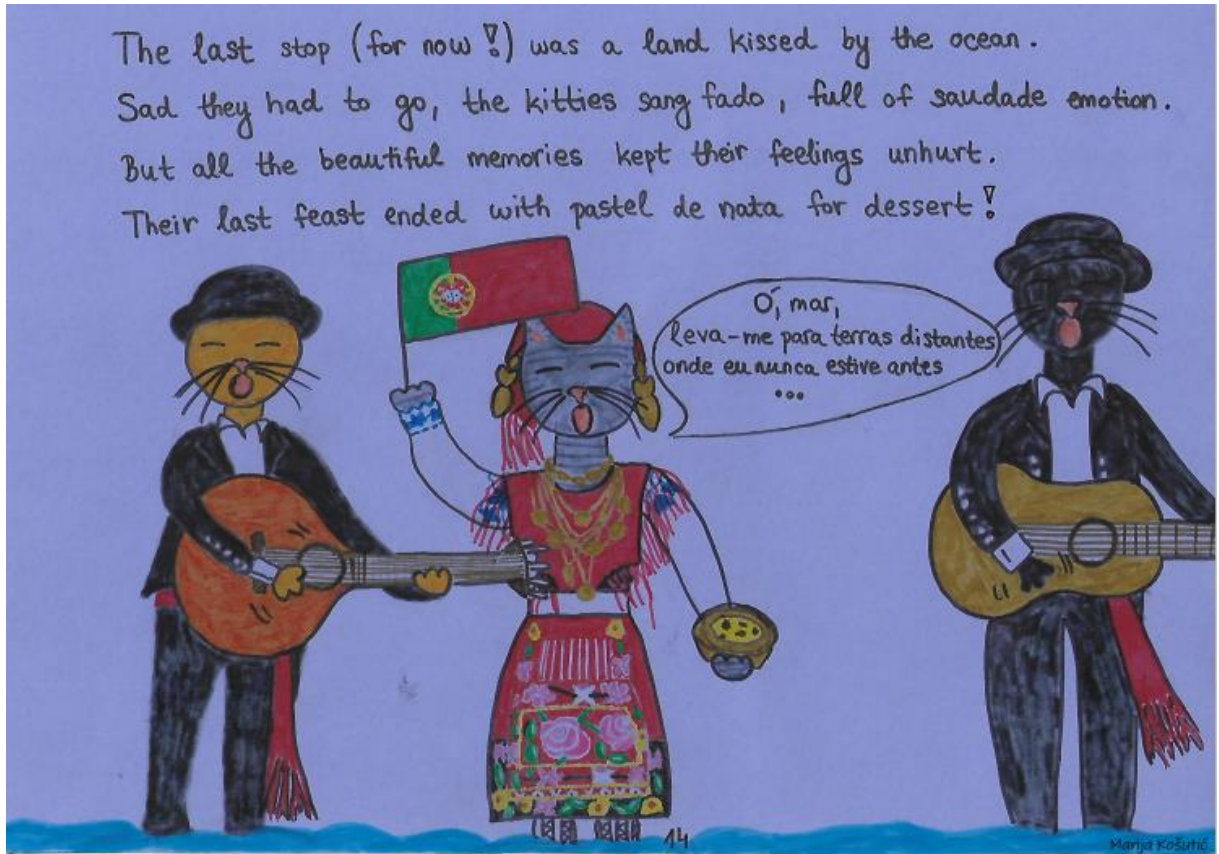 The last stop (for now!) was a land kissed by the ocean.
Sad they had to go, the kitties sang fado, full of saudade emotion.
But all the beautiful memories kept their feelings unhurt.
Their last feast ended with pastel de nata for dessert!
Ó, mar,
leva-me para terras distantes
onde eu nunca estive antes
...
14
Marija Košutić